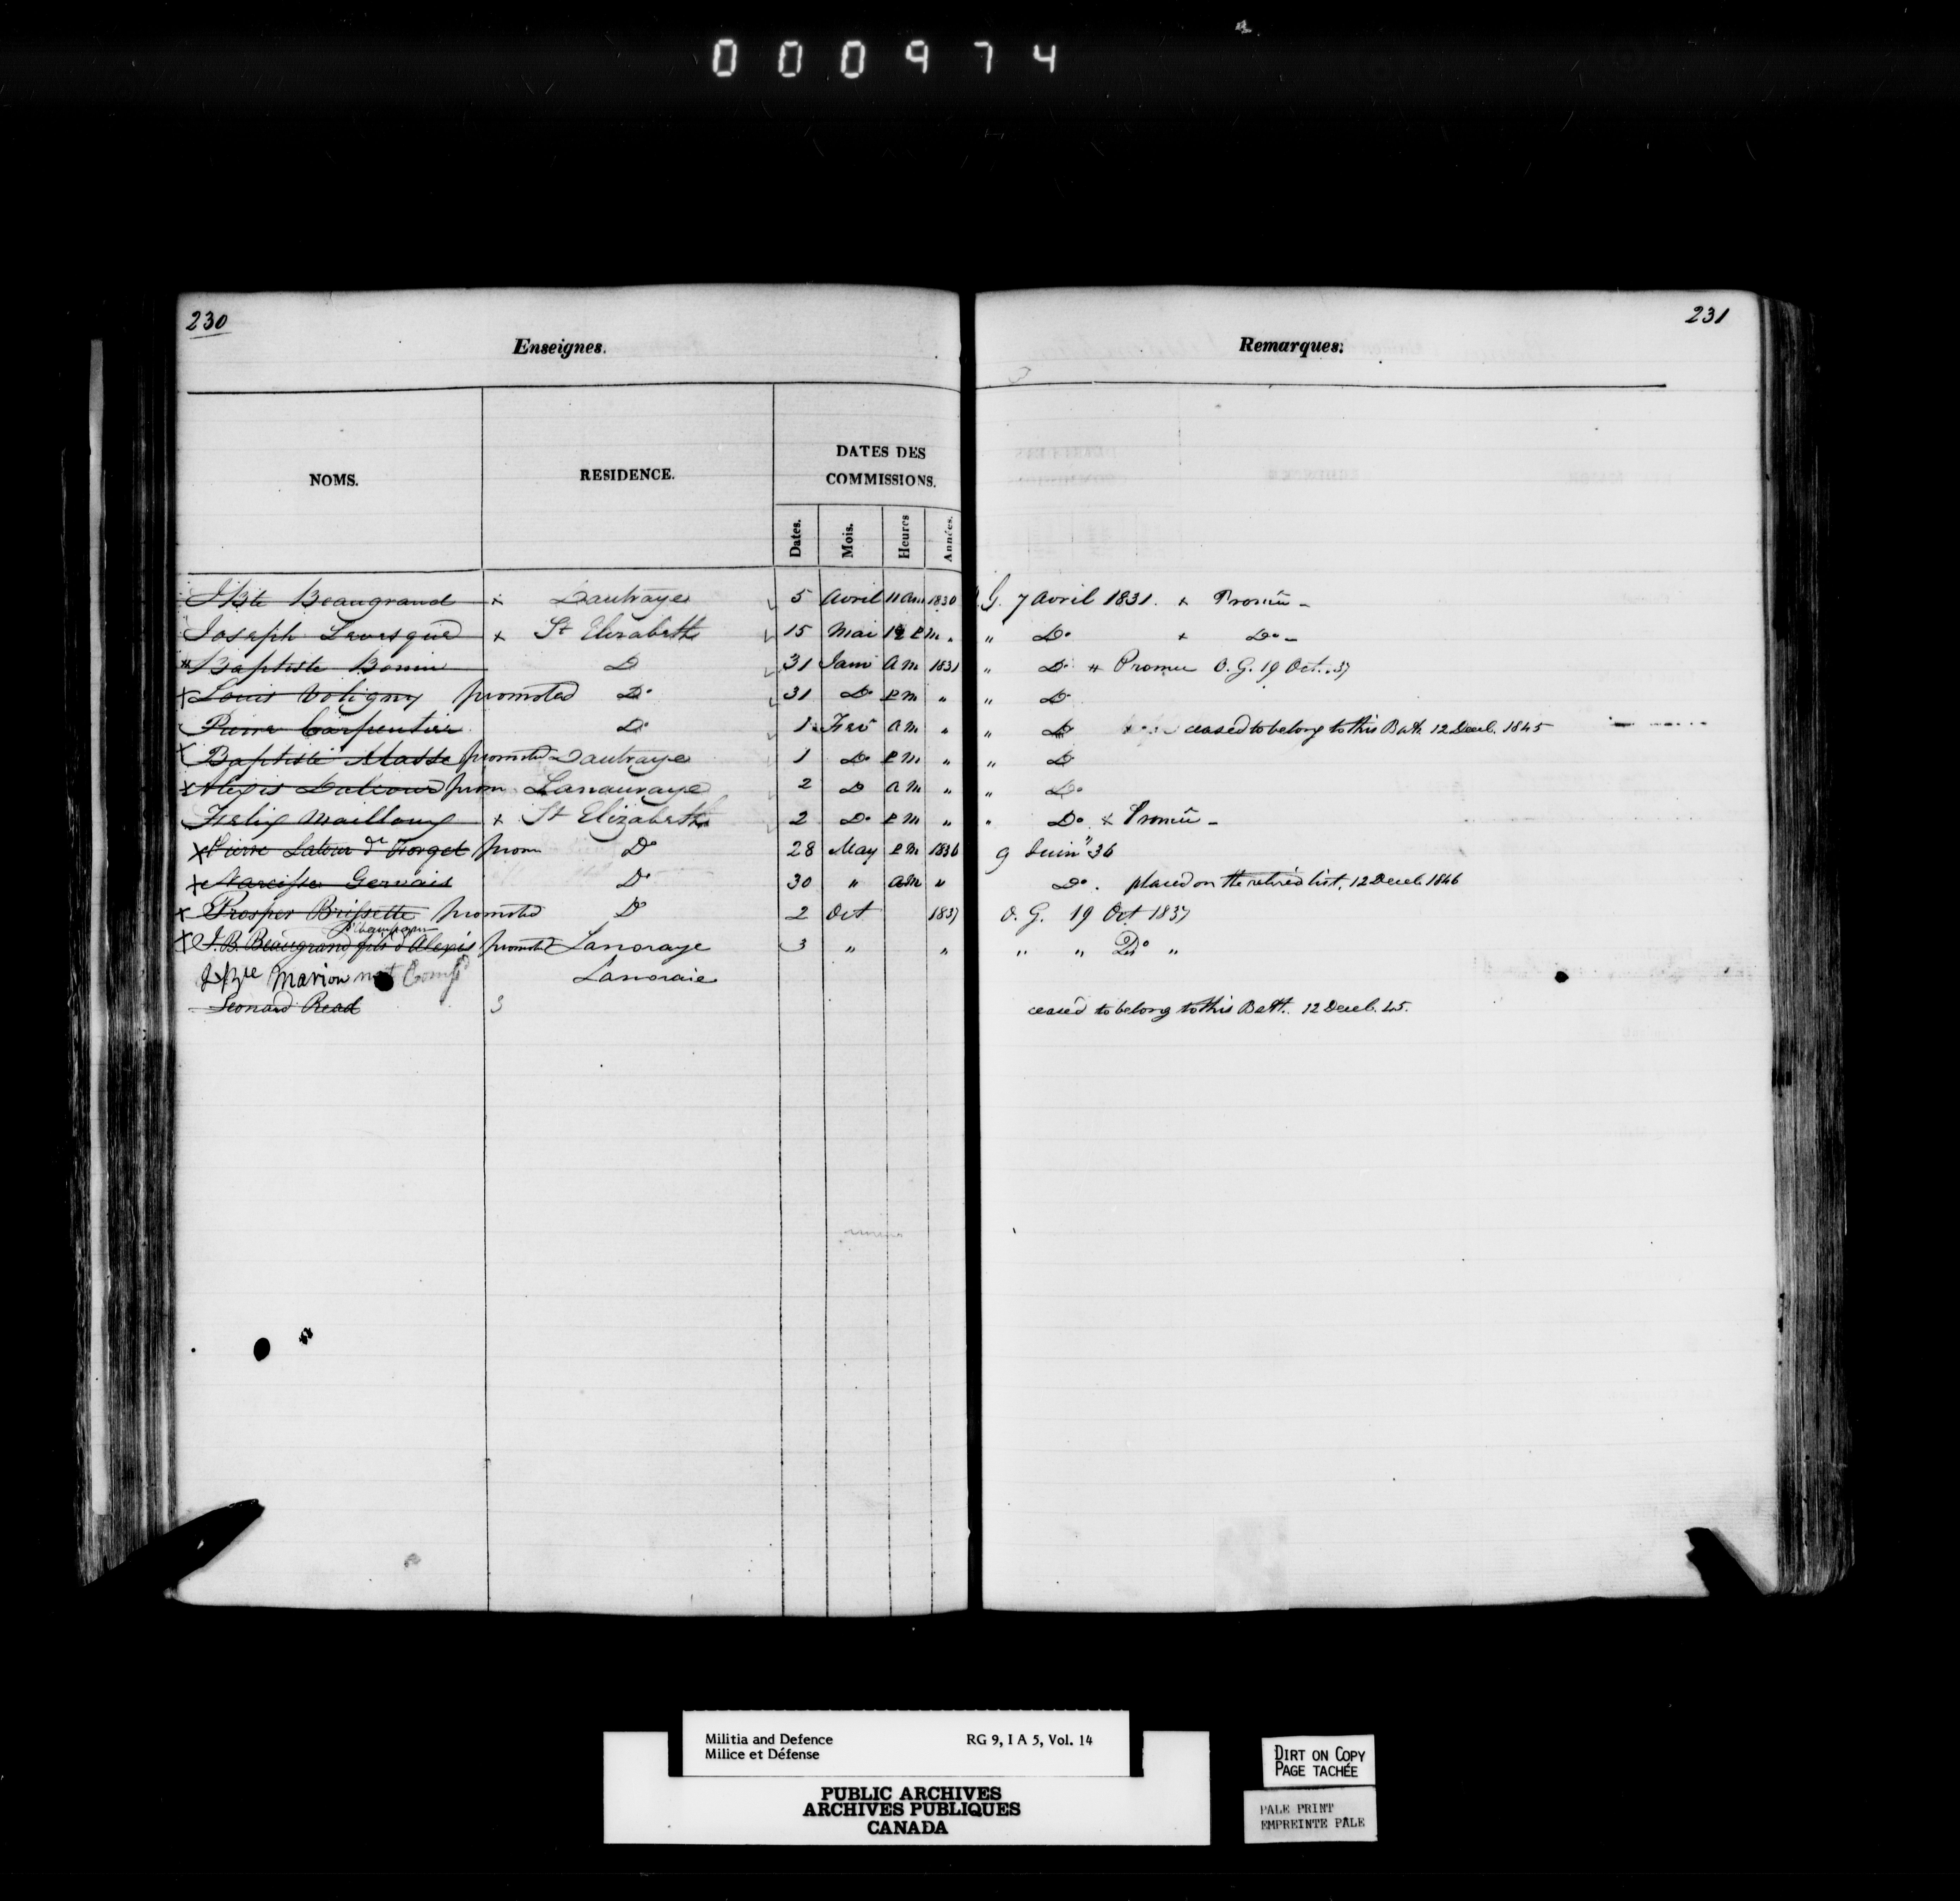 000974
230
Enseignes.
231
Remarques.
NOMS.
RESIDENCE.
DATES DES
COMMISSIONS.
Dates.
Mois.
Heures
Années.
J Bte Beaugrand x Dautraye 5 Avril 11 am 1830 G. 7 Avril 1831. x Promû -
Joseph Levesque x St Elizabeth 15 Mai 12 P m " " Do x Do -
Baptiste Bonin D 31 Janv a m 1831 " D Promu O. G. 19 Oct. 37
x Louis Voligny promoted Do 31 Do P m " " D
Pierre Carpentier Do 1 Fev a m " " D ceased to belong to this Batt. 12 Decb. 1845
x Baptiste Masse promoted Dautraye 1 Do P m " " D
x Alexis prom Lanauraye 2 D a m " " Do
Felix Mailloux x St Elizabeth 2 Do P m " " Do x Promû -
x Pierre Latour dt Forget prom Do 28 May P m 1836 9 Juin " 36
x Narcisse Gervais Do 30 " a m " Do. placed on the retired list, 12 Decb 1846
x Prosper Brissette promoted D 2 Oct 1837 O. G. 19 Oct 1837
Champagne
x J. B. Beaugrand fils d'Alexis promoted Lanoraye 3 " " " " Do "
Marion not Lanoraie
Leonard Read 3 ceased to belong to this Batt. 12 Decb. 45.
Militia and Defence RG 9, I A 5, Vol. 14
Milice et Défense
PUBLIC ARCHIVES
ARCHIVES PUBLIQUES
CANADA
DIRT ON COPY
PAGE TACHÉE
PALE PRINT
EMPREINTE PÂLE